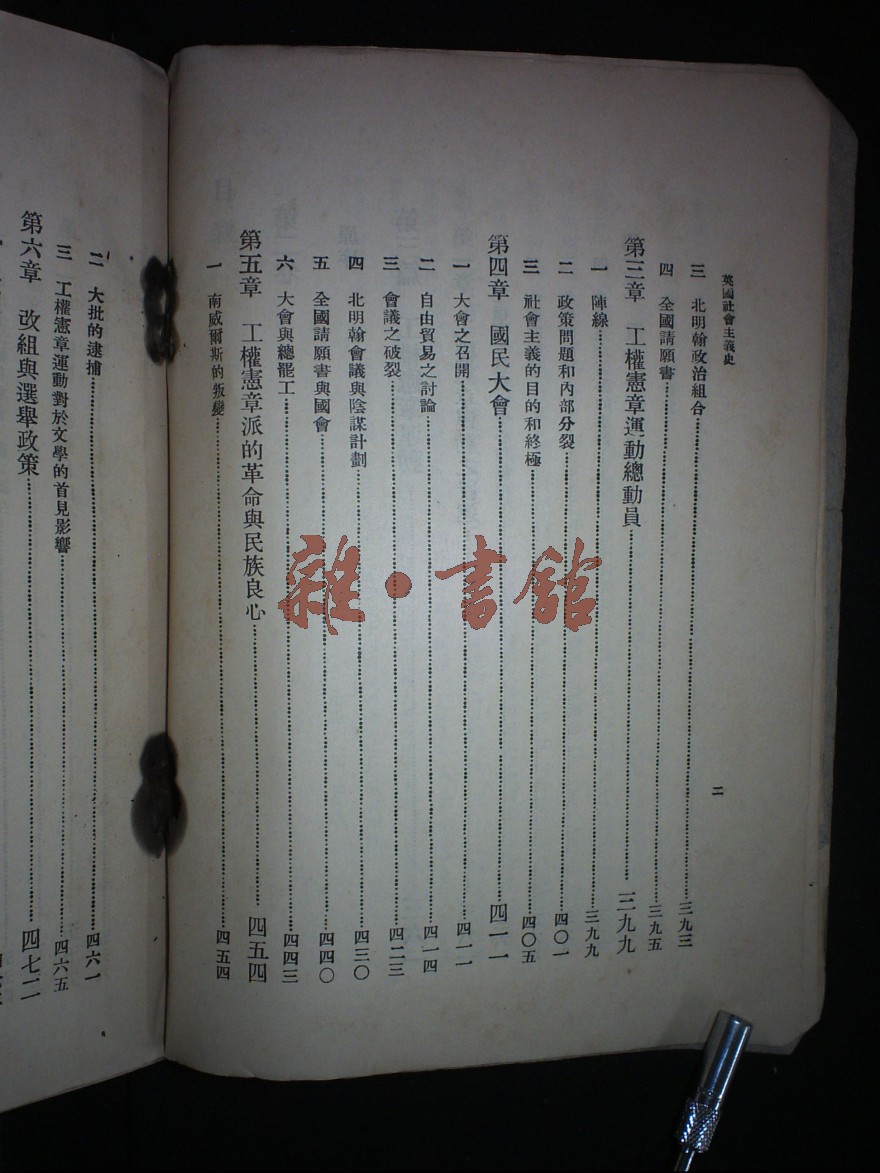 英國社會主義史
二
三 北明翰政治組合 三九三
四 全國請願書 三九五
第三章 工權憲章運動總動員 三九九
一 陣線 三九九
二 政策問題和內部分裂 四〇一
三 社會主義的目的和終極 四〇五
第四章 國民大會 四一一
一 大會之召開 四一一
二 自由貿易之討論 四一四
三 會議之破裂 四二三
四 北明翰會議與陰謀計劃 四三〇
五 全國請願書與國會 四四〇
六 大會與總罷工 四四三
第五章 工權憲章派的革命與民族良心 四五四
一 南威爾斯的叛變 四五四
二 大批的逮捕 四六一
三 工權憲章運動對於文學的首見影響 四六五
第六章 改組與選舉政策 四七二
雜·書館